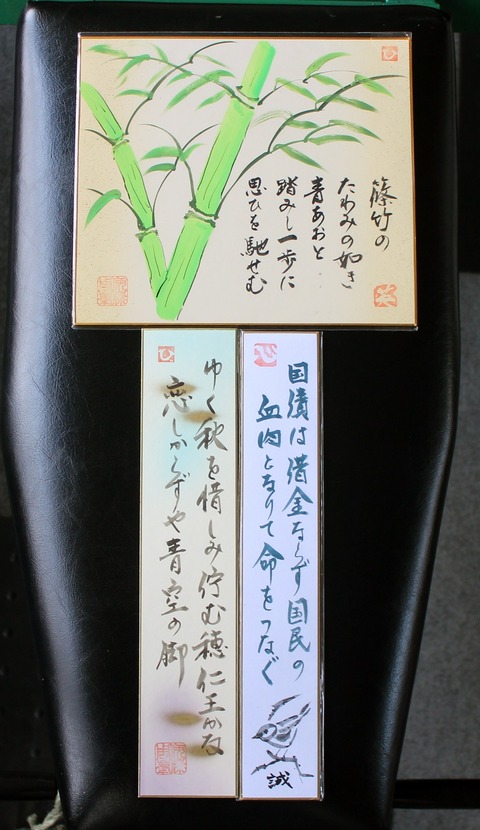 篠竹の
たわみの如き
青あおと
踏みし一歩に
思ひを馳せむ
国債は借金ならず国民の
血肉となりて命をつなぐ
誠
ゆく秋を惜しみ佇む穂仁王かな
恋しからずや青空の脚